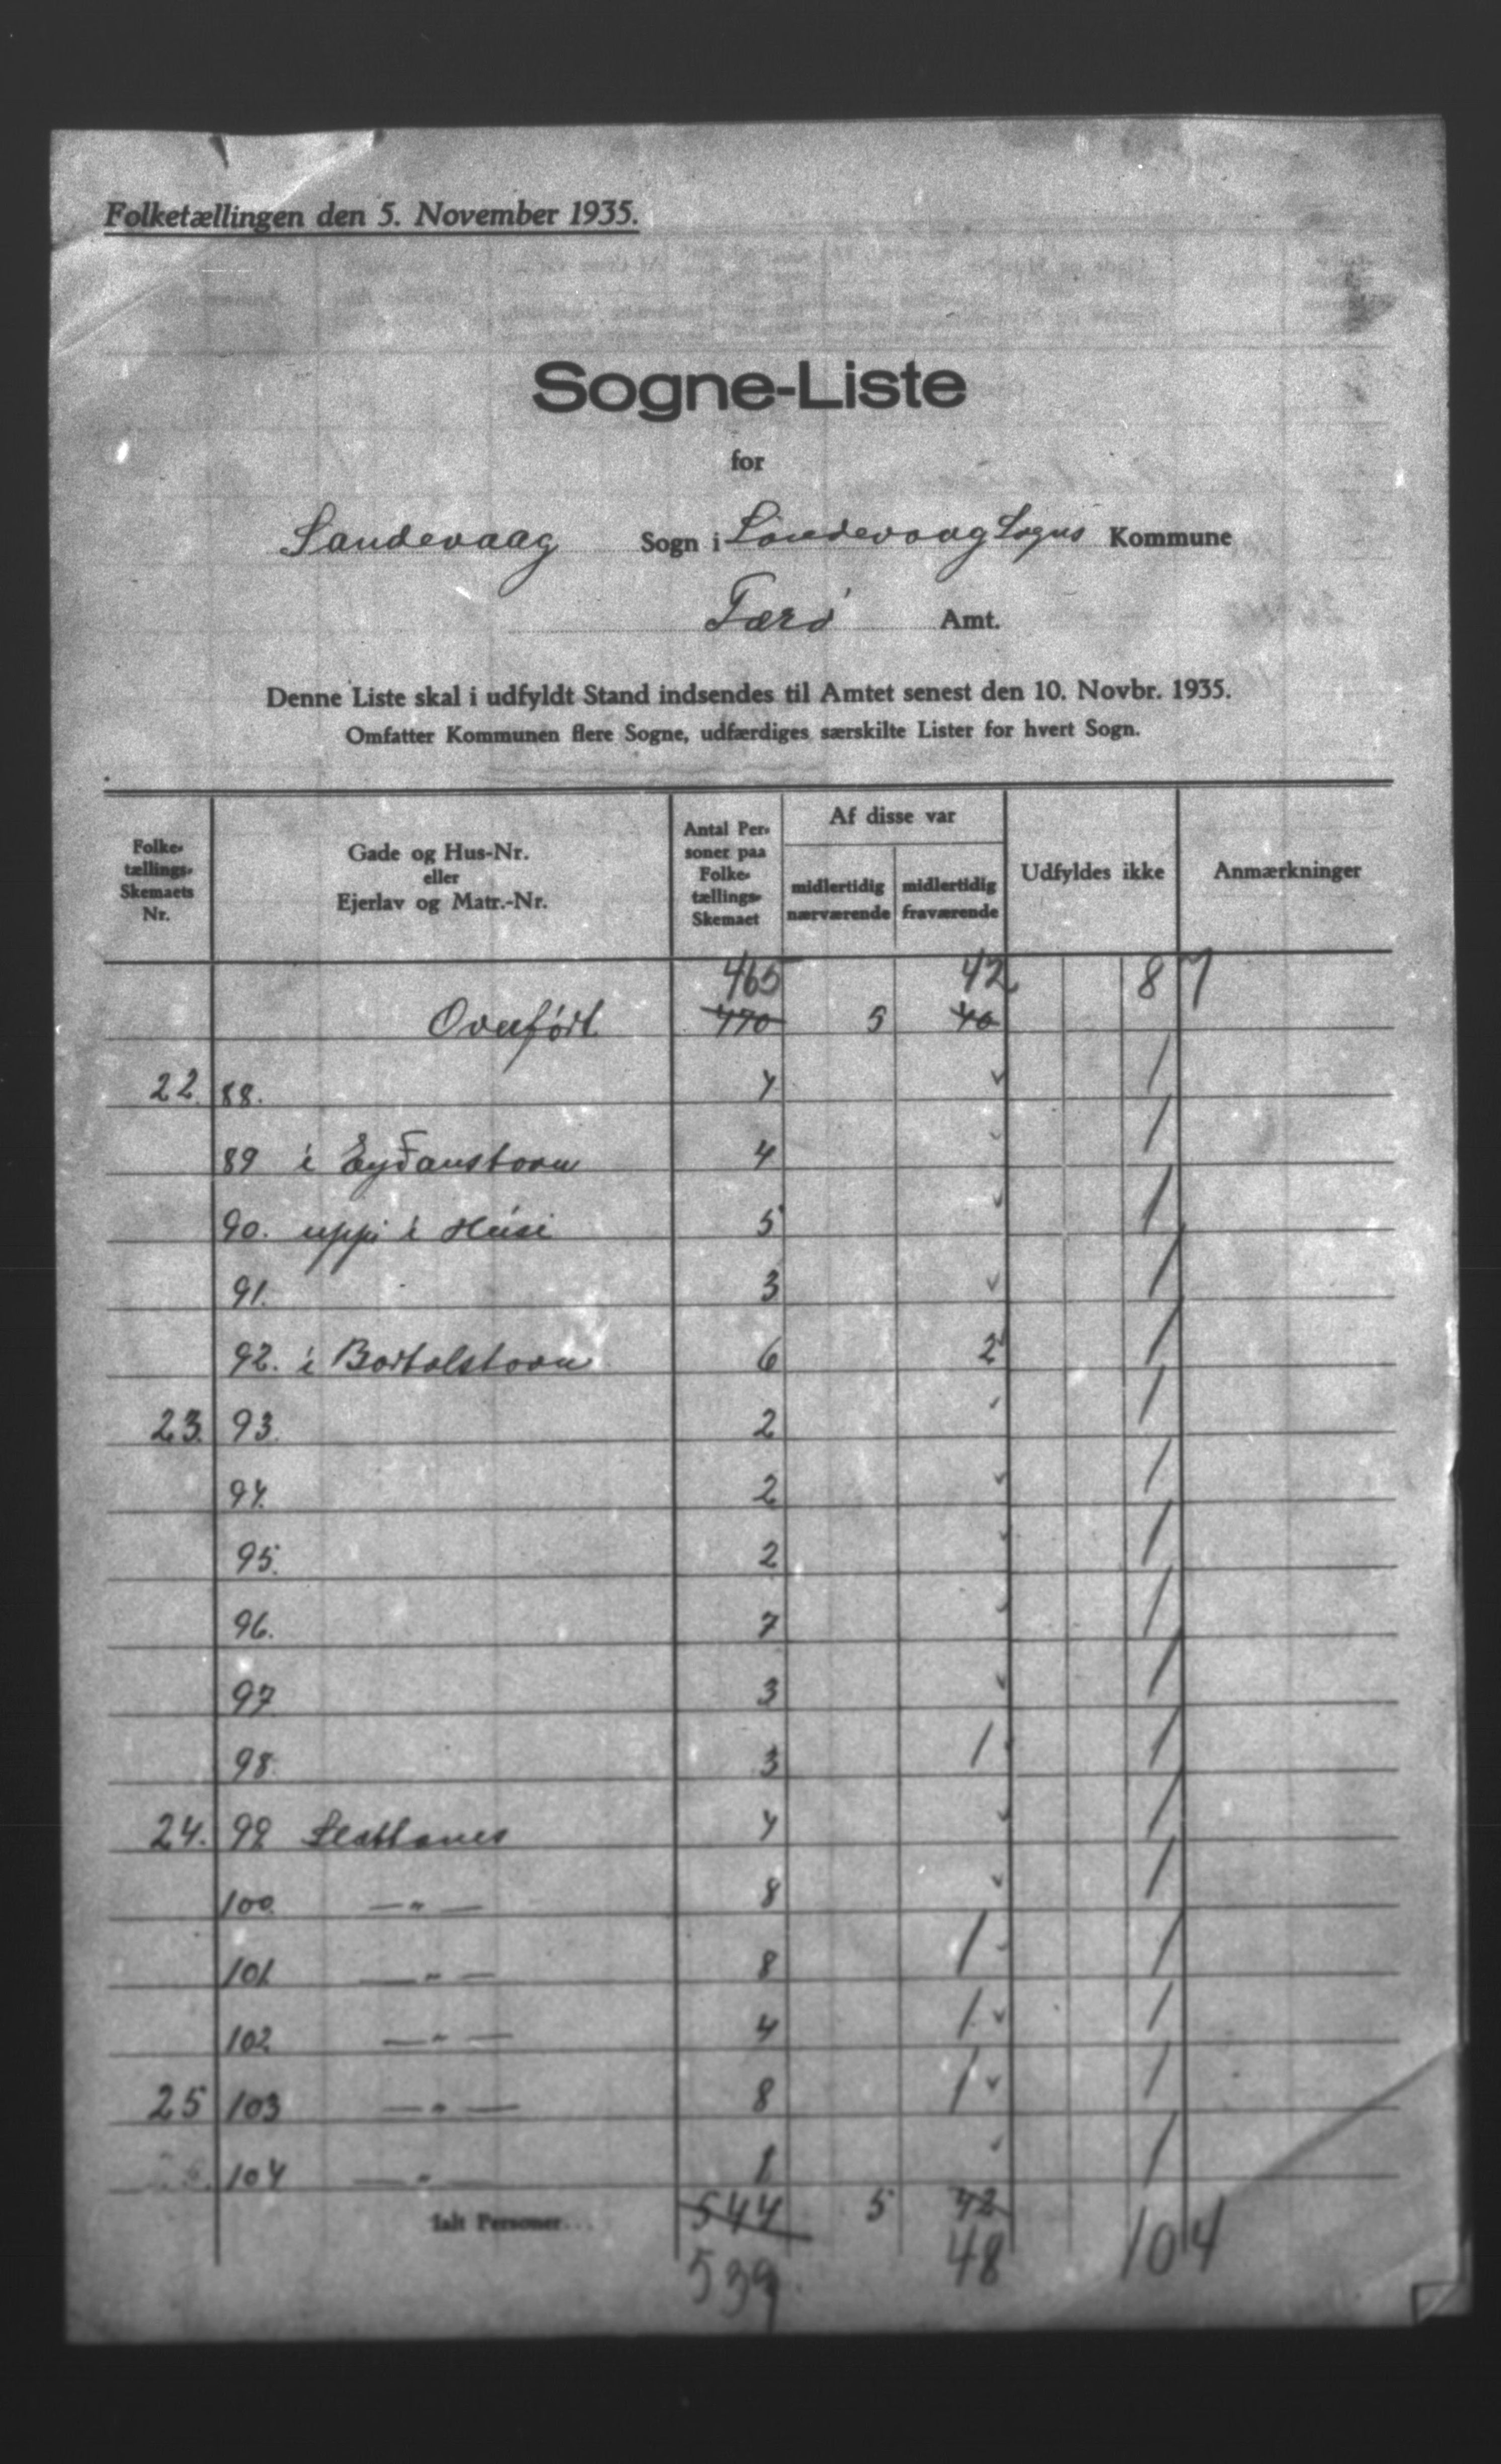 Folketællingen den 5. November 1935.
Sogne-Liste
for
Sandevaag Sogn i Sandevaag Sogns Kommune
Færø Amt.
Denne Liste skal i udfyldt Stand indsendes til Amtet senest den 10. Novbr. 1935.
Omfatter Kommunen flere Sogne, udfærdiges særskilte Lister for hvert Sogn.
Folke-
tællings-
Skemaets
Nr.
Gade og Hus-Nr.
eller
Ejerlav og Matr.-Nr.
Antal Per-
soner paa
Folke-
tællings-
Skemaet
Af disse var
midlertidig
nærværende
midlertidig
fraværende
Udfyldes ikke
Anmærkninger
465 42 87
Overført 470 5 40
22. 88. 4 /
89 i Eyðanstovu 4 /
90. uppi i Húsi 5 /
91. 3 /
92. i Bortalstovu 6 2 /
23. 93. 2 /
94. 2 /
95. 2 /
96. 7 /
97 3 /
98 3 1 /
24. 99 Slættanes 4 /
100. —"— 8 /
101 —"— 8 1 /
102 —"— 4 1 /
25 103 —"— 8 1 /
104 —"— 1 /
Ialt Personer... 544 5 42
539 48 104